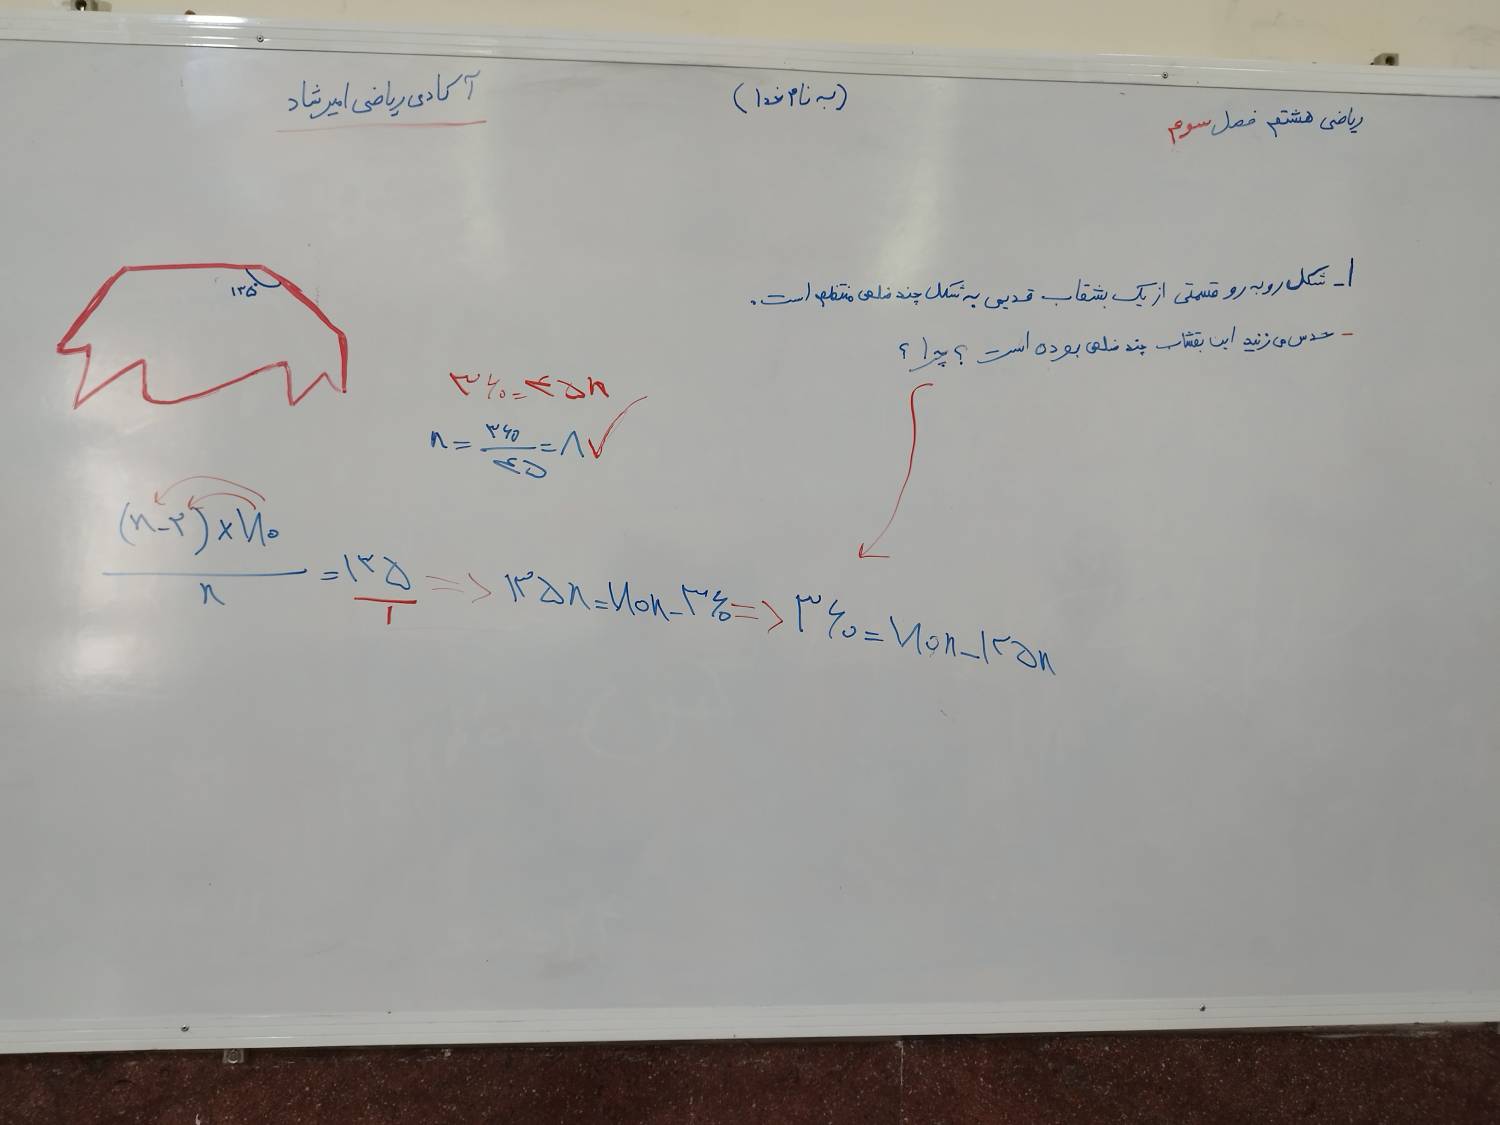 ریاضی هشتم فصل سوم
(به نام خدا)
آکادمی ریاضی امیرشاد
۱- شکل روبه رو قسمتی از یک بشقاب قدیمی به شکل چند ضلعی منتظم است.
- حدس می زنید این بقشاب چند ضلعی بوده است ؟ چرا ؟
۱۳۵
۳۶۰ = ۴۵n
n = ۳۶۰/۴۵ = ۸ ✓
(n-۲) × ۱۸۰ / n = ۱۳۵/۱ => ۱۳۵n = ۱۸۰n - ۳۶۰ => ۳۶۰ = ۱۸۰n - ۱۳۵n